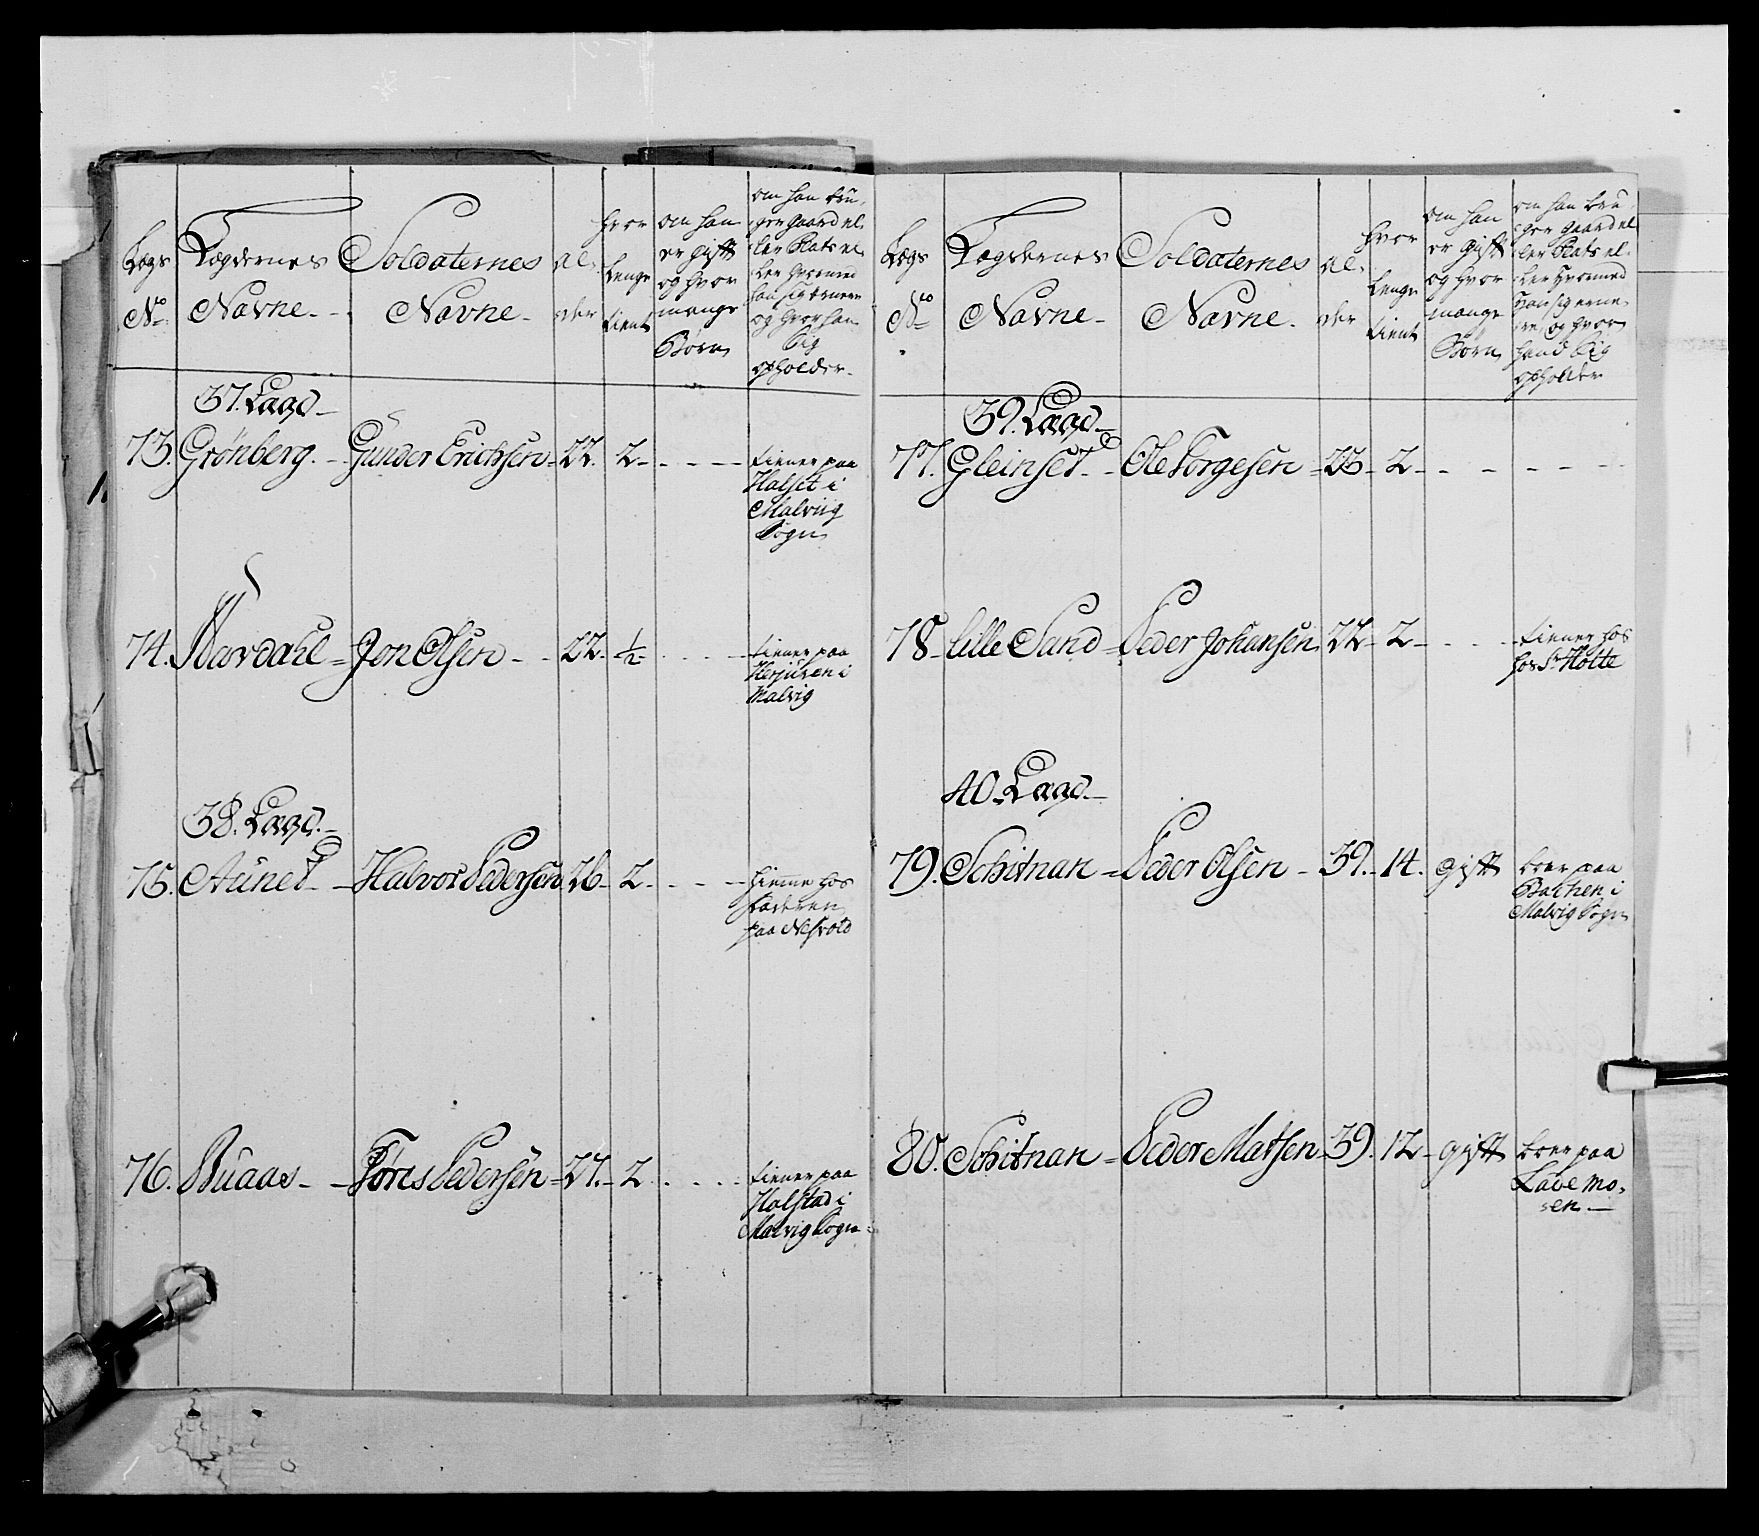 Lægs No
Lægdernes Navne
Soldaternes Navne
al- der
hvor lenge tient
om han er gift og hvor mange Børn
om han bru- ger Gaard el- ler Plats el- ler hvormed han sig ernere og hvor han sig opholder
37. Lægd
73. Grönberg Gunder Erichsen 22. 2 tiener paa
Halset i
Malviig
Sogn
74. Jon Olsen 22. 1/2 tiener paa
Malvig
38. Lægd
75. Aunet Halvor Pedersen 26 2 hiemme hos
Faderen
paa
76. Buaas Pedersen 27. 2 tiener paa
Halstad i
Malvig Sogn
Lægs No
Lægdernes Navne
Soldaternes Navne
al- der
hvor lenge tient
om han er gift og hvor mange Børn
om han bru- ger Gaard el- ler Plats el- ler hvormed han sig erne- re, og hvor hand sig opholder
39. Lægd
77. Gleinset Ole Torgesen 23 2
78 lille Sand Peder Johansen 22 2 tiener hos
hos Sr Holte
40. Lægd
79. Schitnan Peder Olsen 39. 14. gift boer paa
Bachen i
Malvig Sogn
80. Schitnan Peder Matsen 39. 12 gift boer paa
Lave Mo-
sen